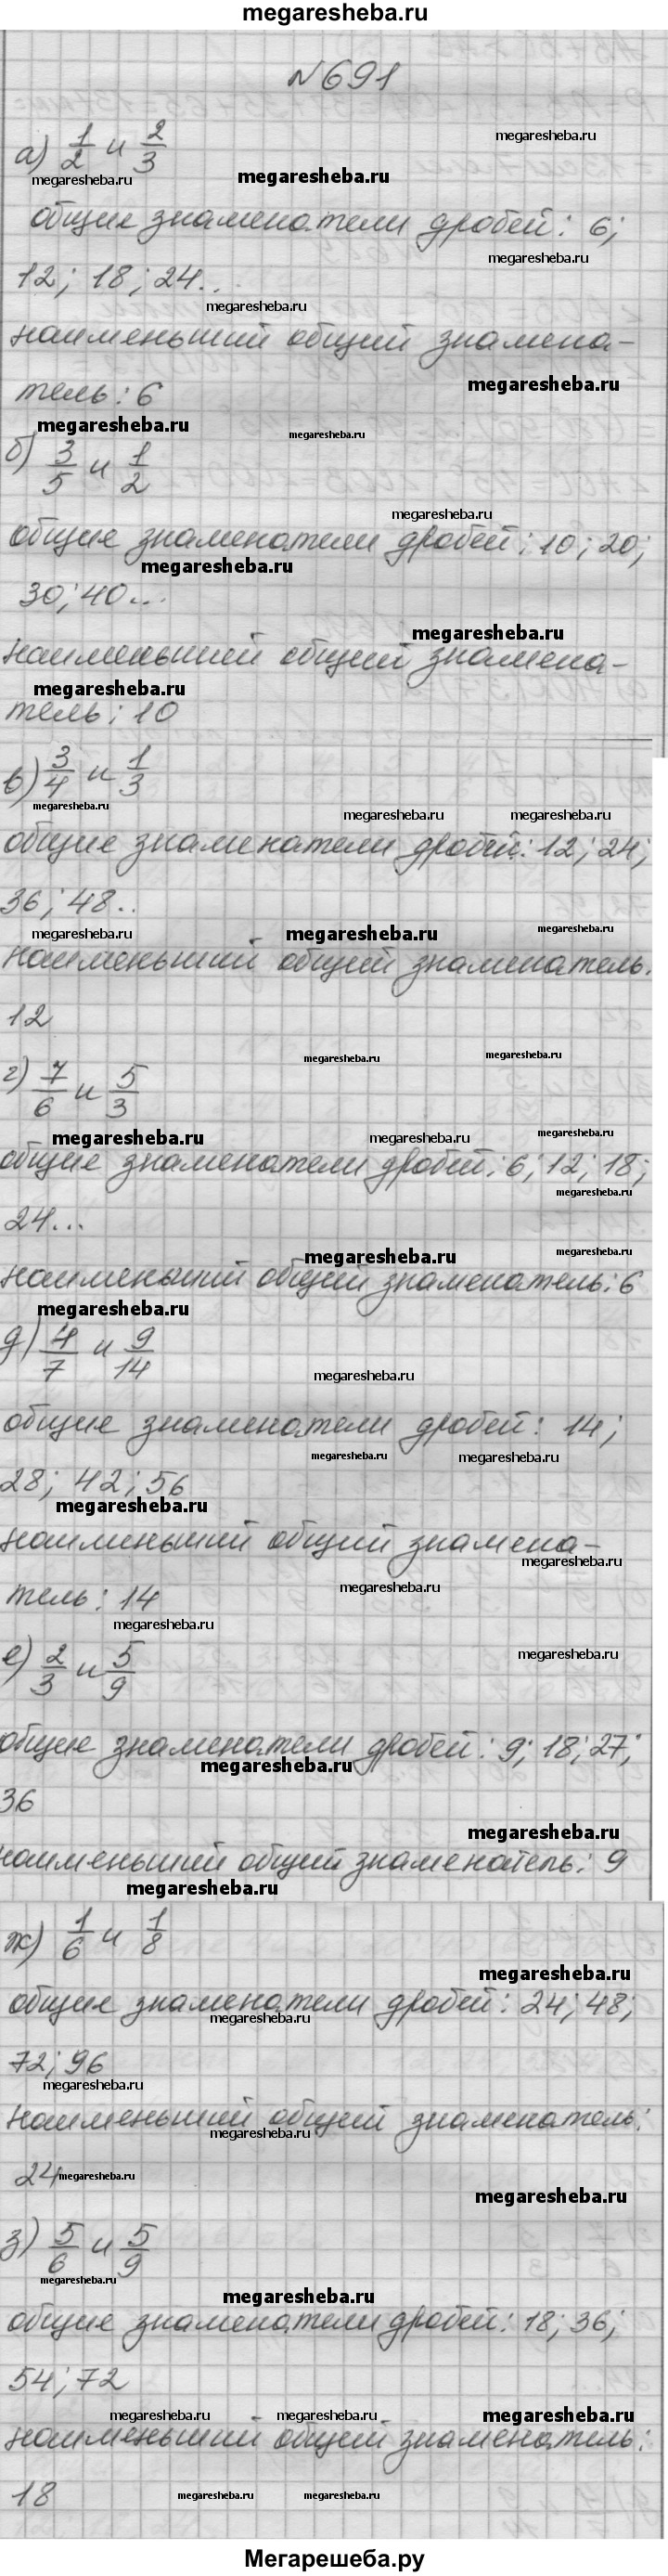 megaresheba.ru
№691
а) 1/2 и 2/3
megaresheba.ru
общие знаменатели дробей: 6;
12; 18; 24..
наименьший общий знамена-
тель: 6
б) 3/5 и 1/2
общие знаменатели дробей: 10; 20;
30; 40...
наименьший общий знамена-
тель: 10
в) 3/4 и 1/3
общие знаменатели дробей: 12; 24;
36; 48..
наименьший общий знаменатель.
12
г) 7/6 и 5/3
общие знаменатели дробей: 6; 12; 18;
24...
наименьший общий знаменатель: 6
д) 4/7 и 9/14
общие знаменатели дробей: 14;
28; 42; 56
наименьший общий знамена-
тель: 14
е) 2/3 и 5/9
общие знаменатели дробей: 9; 18; 27;
36
наименьший общий знаменатель: 9
ж) 1/6 и 1/8
общие знаменатели дробей: 24; 48;
72; 96
наименьший общий знаменатель:
24
з) 5/6 и 5/9
общие знаменатели дробей: 18; 36;
54; 72
наименьший общий знаменатель:
18
Мегарешеба.ру